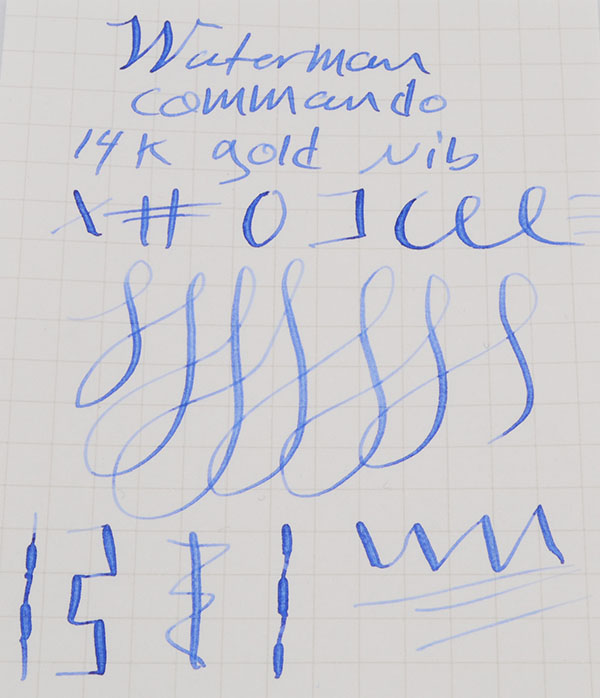 Waterman
commando
14K gold nib